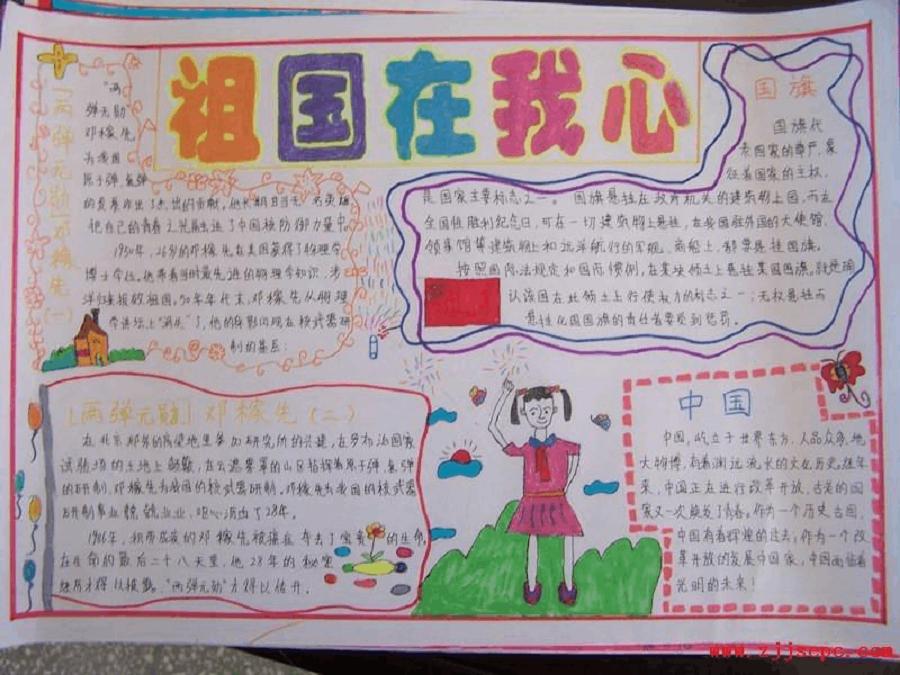 祖国在我心
「两弹元勋」邓稼先(一)
"两
弹元勋"
邓稼先
为我国
原子弹、氢弹
的发展作出了杰出的贡献,他长期
把自己的青春
1950年,26岁的邓稼先在美国获得了物理学
博士学位。他带着当时最先进的物理学知识,涉
洋归来报效祖国。50年年代末,邓稼先从物理
学讲坛上"消失"了,他的身影出现在核武器研
制的基层;
国旗
国旗代
表国家的尊严,象
征着国家的主权,
是国家主要标志之一。国旗悬挂在政府机关的建筑物上
全国性胜利纪念日,可在一切建筑物上悬挂,在我国驻外国的大使馆、
领事馆等建筑物上和远洋航行的军舰、商船上,都要悬挂国旗。
按照国际法规定和国际惯例,在某块领土上悬挂某国国旗,就是确
认该国在此领土上行使权力的标志之一;无权悬挂而
悬挂他国国旗的责任者要受到惩罚。
「两弹元勋」邓稼先(二)
在北京
的土地上
的研制,邓稼先为祖国的核武器研制。邓稼先为我国的核武器
研制事业兢兢业业,呕心沥血了28年。
1986年,
在生命的最后二十八天里,他28年的秘密
经历才得以披露。"两弹元勋"才得以传开。
中国
中国,屹立于世界东方,人品众多,地
大物博,有着渊远流长的文化历史。近年
来,中国正在进行改革开放,古老的国
家又一次焕发了青春。作为一个历史古国,
中国有着辉煌的过去;作为一个改
革开放的发展中国家,中国面临着
光明的未来!
www.zjjscpc.com